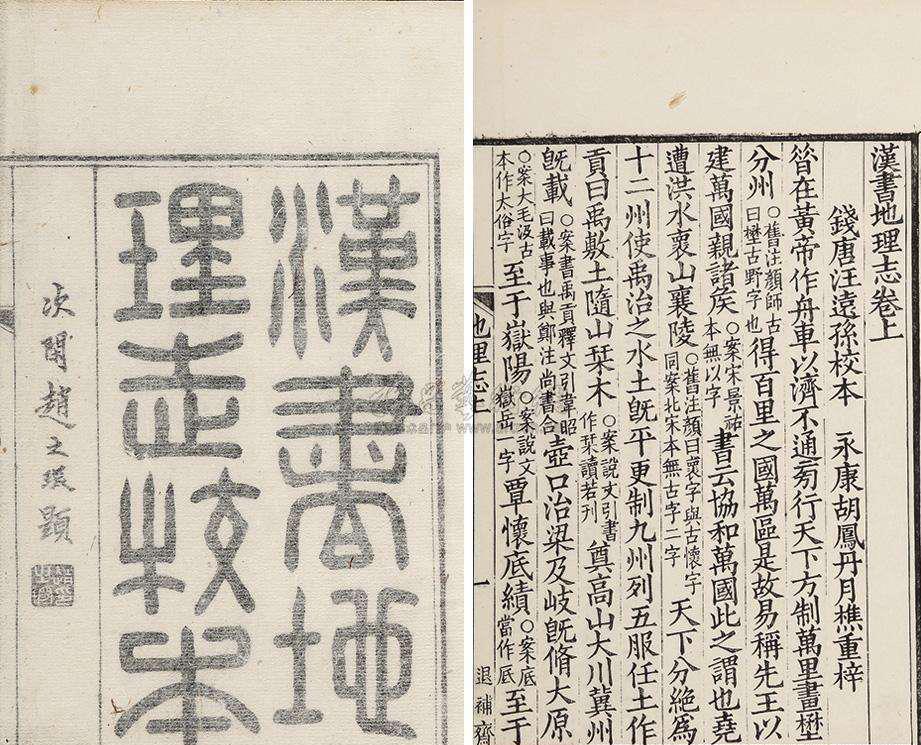 漢書地
理志校本
次閑趙之琛題
漢書地理志卷上
錢唐汪遠孫校本 永康胡鳳丹月樵重梓
昝在黃帝作舟車以濟不通旁行天下方制萬里畫壄
分州○舊注顏師古曰壄古野字也得百里之國萬區是故易稱先王以
建萬國親諸矦○案宋景祐本無以字書云協和萬國此之謂也堯
遭洪水褱山襄陵○舊注顏曰褱字與古懷字同案北宋本無古字二字天下分絕爲
十二州使禹治之水土旣平更制九州列五服任土作
貢曰禹敷土隨山栞木○案說文引書作栞讀若刊奠高山大川冀州
旣載○案書禹貢釋文引韋昭曰載事也與鄭注尚書合壺口治梁及岐旣脩大原
○案大毛汲古本作太俗字至于嶽陽○案說文嶽岳一字覃懷厎績○案底當作厎至于
地理志上
一
退補齋